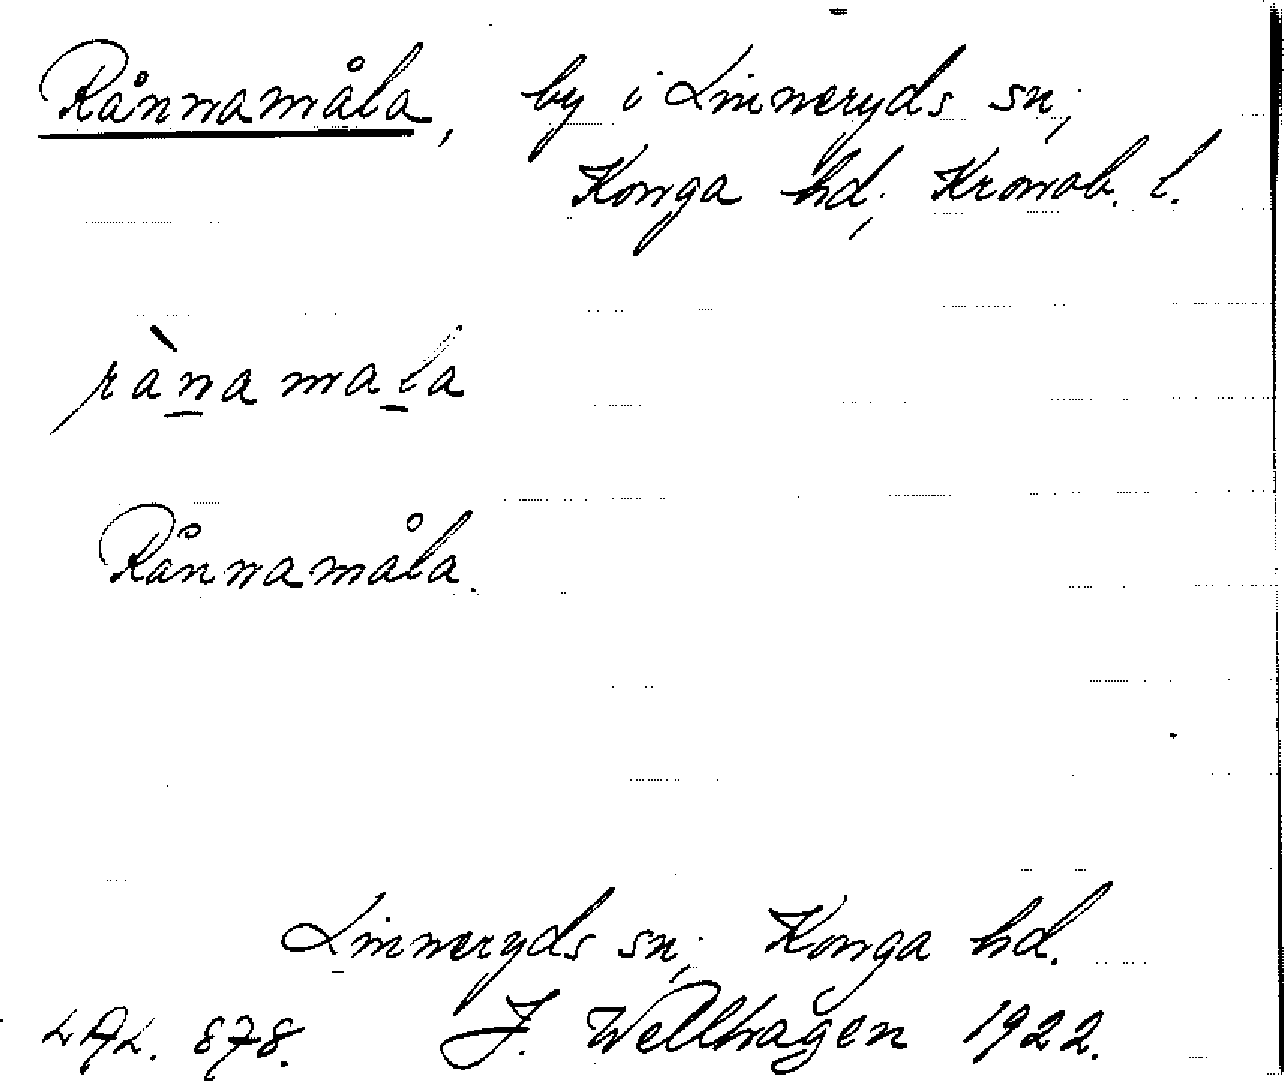 Rånnamåla, by i Linneryds sn;
Konga hd; Kronob. l.
rànamala
Rånnamåla.
Linneryds sn; Konga hd.
LAL. 878. J. Wellhagen 1922.